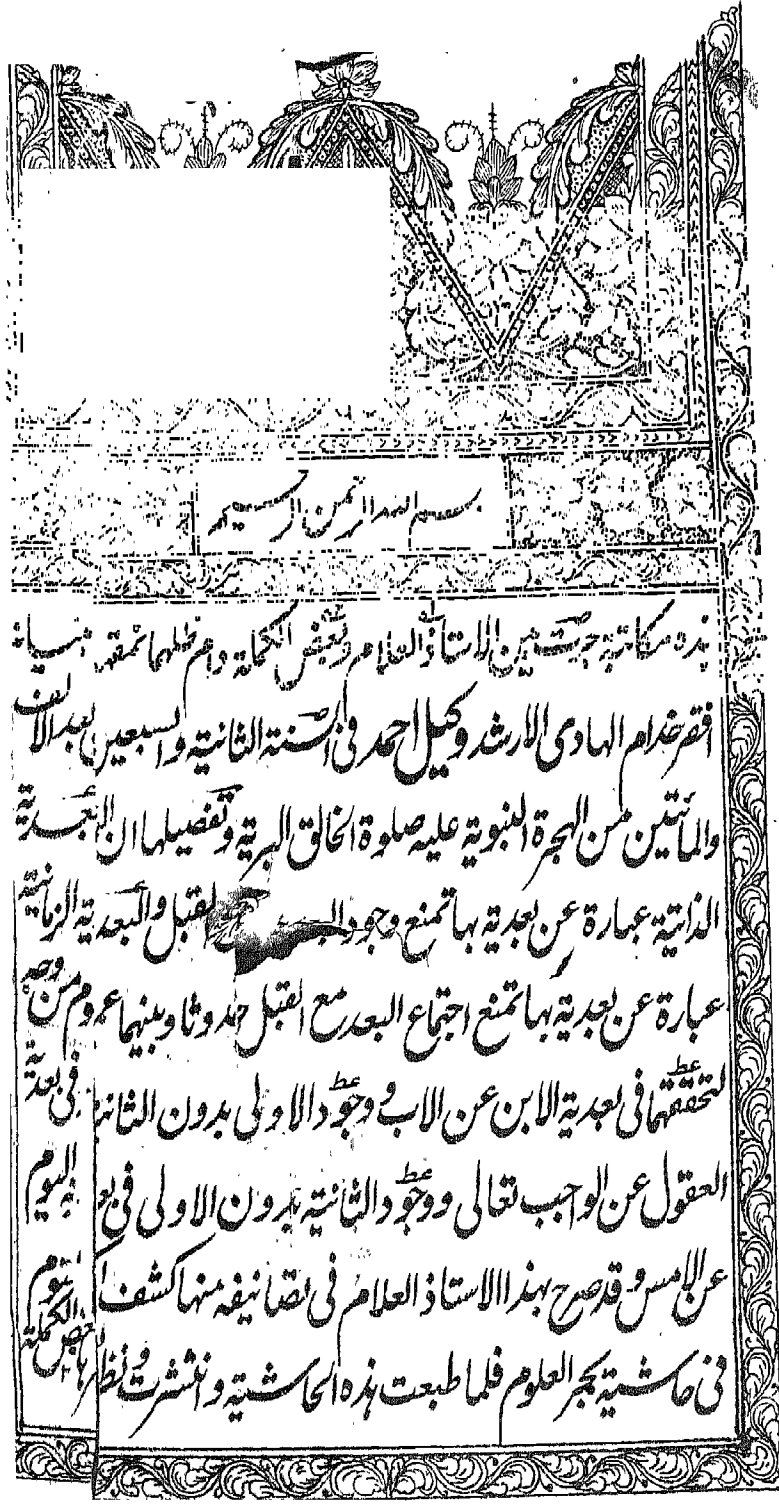 بسم الله الرحمن الرحيم
هذه مكاتبة جرت بين الاستاذ العلام وبعض الكملة دام ظلهما نمقها
افقر خدام الهادى الارشد وكيل احمد فى السنة الثانية والسبعين بعد الالف
والمأتين من الهجرة النبوية عليه صلوة الخالق البرية وتفصيلها ان البعدية
الذاتية عبارة عن بعدية بها تمنع وجود القبل والبعدية الزمانية
عبارة عن بعدية بها تمنع اجتماع البعد مع القبل حدوثا وبينهما عموم من وجه
لتحققهما فى بعدية الابن عن الاب ووجود الاولى بدون الثانية فى بعدية
العقول عن الواجب تعالى ووجود الثانية بدون الاولى فى اليوم
عن الامس وقد صرح بهذا الاستاذ العلام فى تصانيفه منها كشف
فى حاشية بحر العلوم فلما طبعت هذه الحاشية وانتشرت ونظرها بعض الكملة